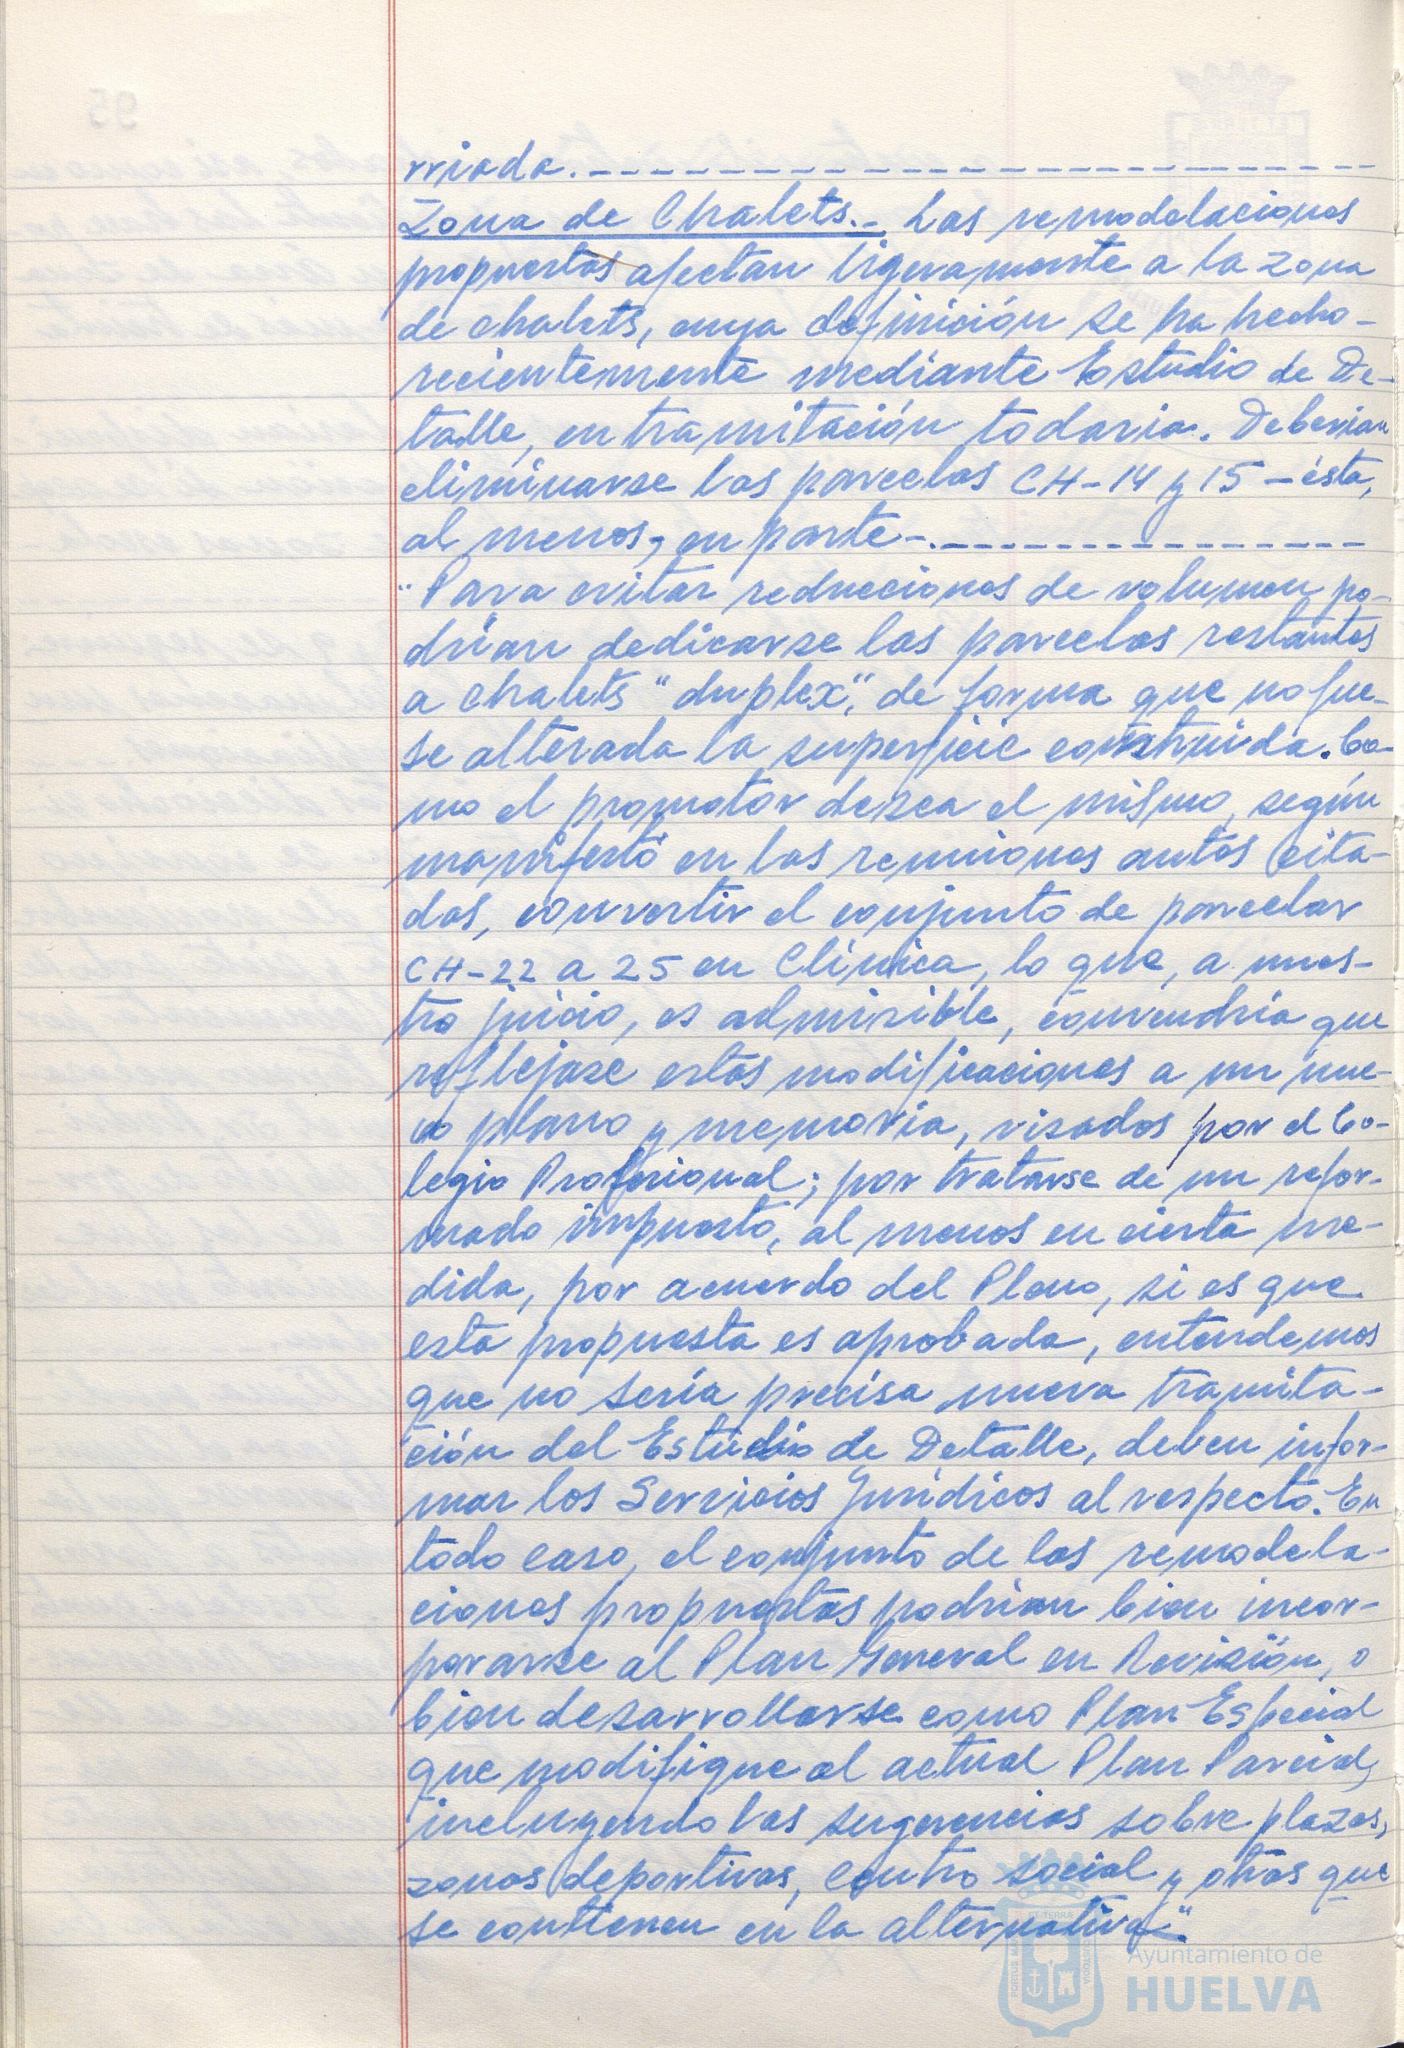 rriada.
Zona de Chalets.- Las remodelaciones
propuestas afectan ligeramente a la zona
de chalets, cuya definición se ha hecho
recientemente mediante Estudio de De-
talle, en tramitación todavia. Deberian
eliminarse las parcelas CH-14 y 15 - ésta,
al menos, en parte-.
"Para evitar reducciones de volumen po-
drian dedicarse las parcelas restantes
a chalets "duplex", de forma que no fue-
se alterada la superficie construida. Co-
mo el promotor desea el mismo, según
manifestó en las reuniones antes cita-
das, convertir el conjunto de parcelas
CH-22 a 25 en Clinica, lo que, a nues-
tro juicio, es admisible, convendría que
reflejase estas modificaciones a un nue-
vo plano y memoria, visados por el Co-
legio Profesional; por tratarse de un refor-
mado impuesto, al menos en cierta me-
dida, por acuerdo del Pleno, si es que
esta propuesta es aprobada, entendemos
que no sería precisa nueva tramita-
ción del Estudio de Detalle, deben infor-
mar los Servicios Jurídicos al respecto. En
todo caso, el conjunto de las remodela-
ciones propuestas podrian bien incor-
porarse al Plan General en Revisión, o
bien desarrollarse como Plan Especial
que modifique el actual Plan Parcial,
incluyendo las sugerencias sobre plazas,
zonas deportivas, centro social y otras que
se contienen en la alternativa".
Ayuntamiento de
HUELVA